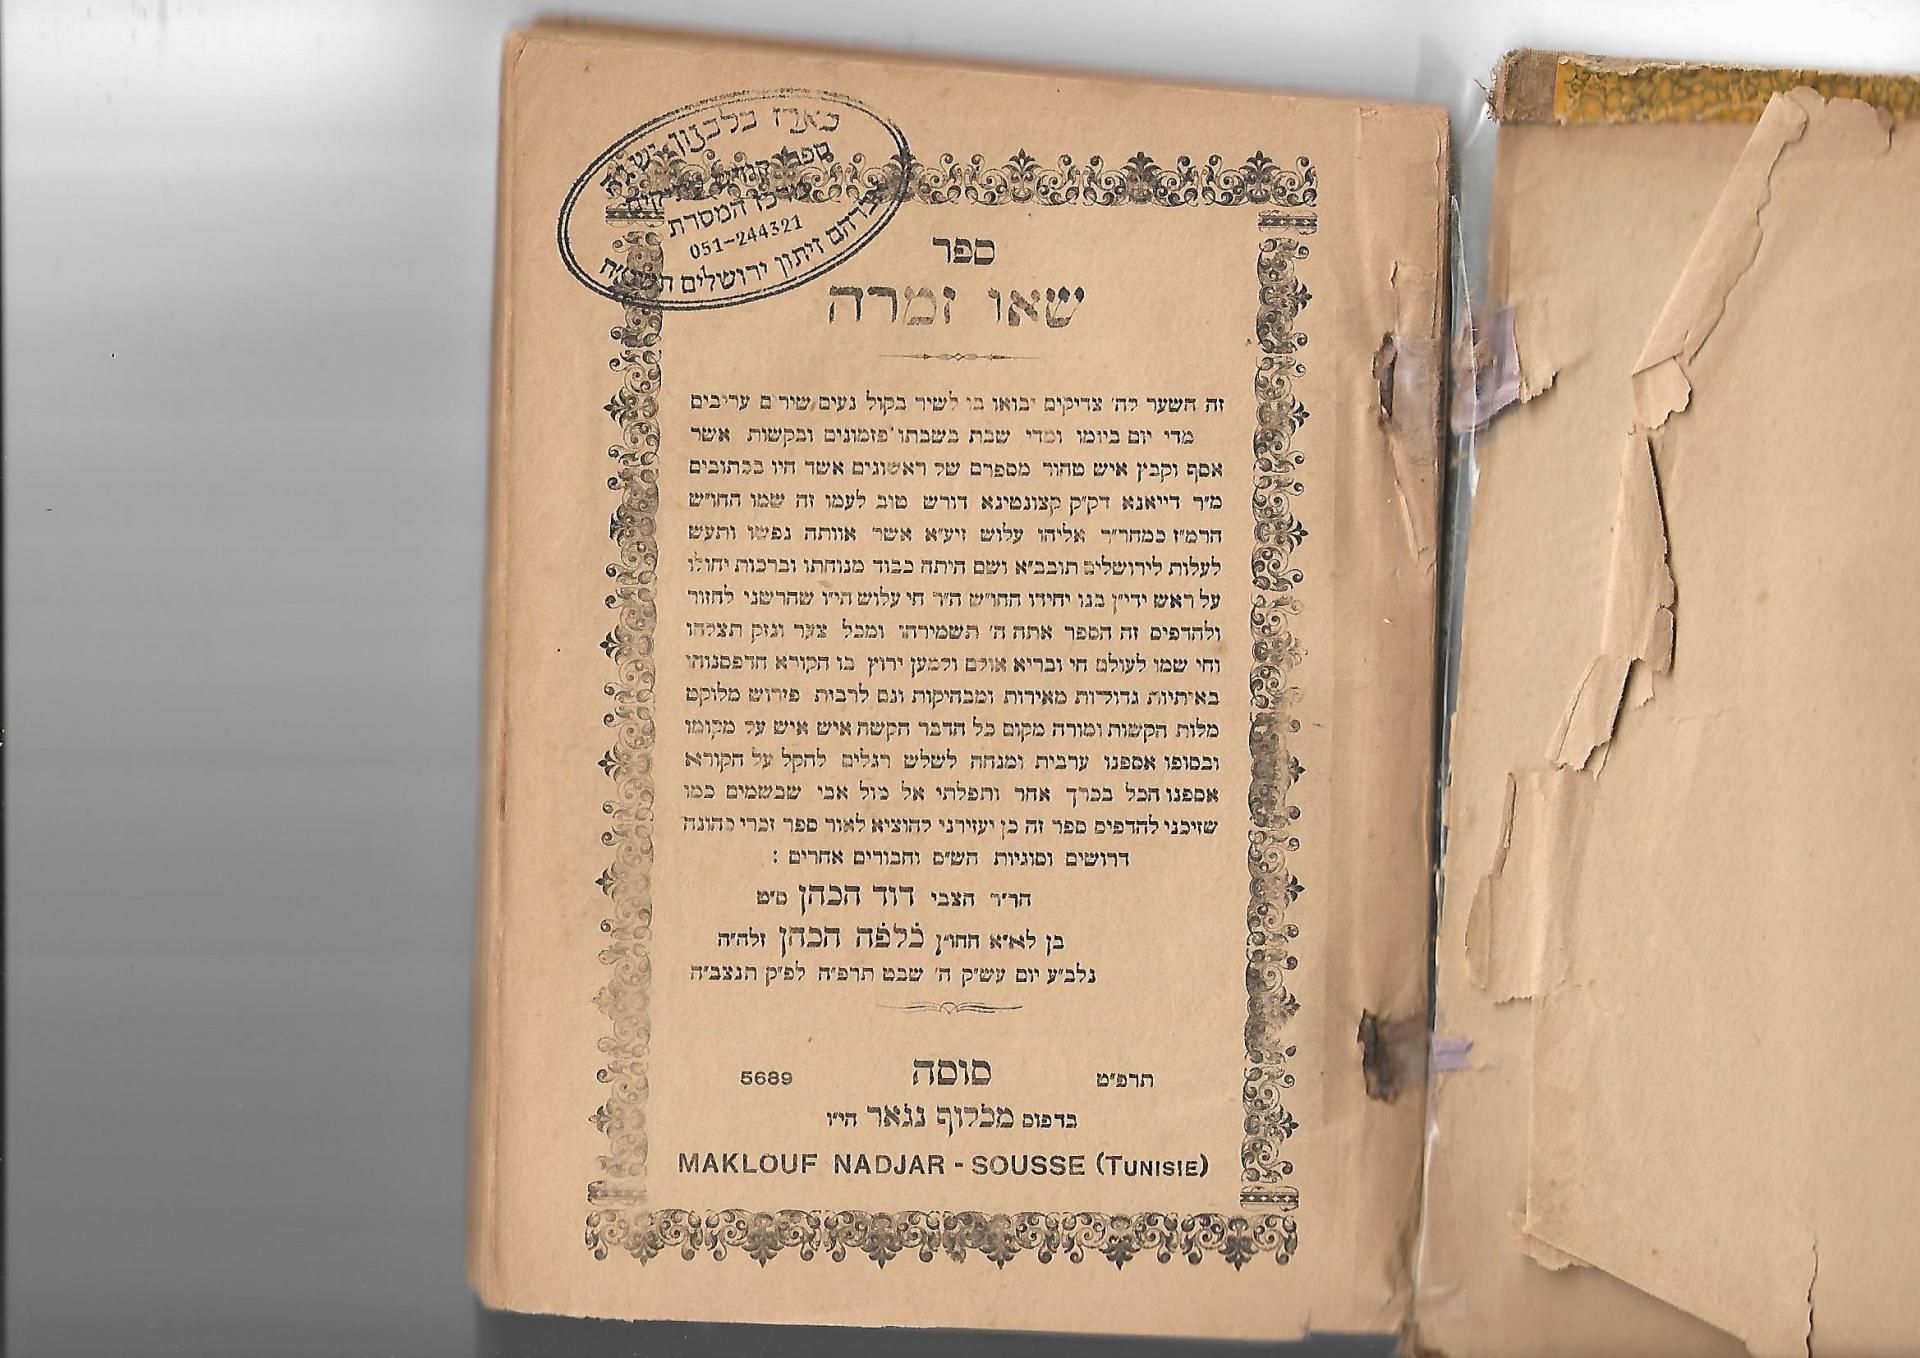 ספרי קודש עתיקים
מרכז המסרת
051-244321
אברהם זיתון ירושלים
ספר
שאו זמרה
זה השער לה' צדיקים יבואו בו לשיר בקול נעים שירים עריבים
מדי יום ביומו ומדי שבת בשבתו פזמונים ובקשות אשר
אסף וקבץ איש טהור מספרם של ראשונים אשר היו בכתובים
מ"ר דייאנא דק"ק קצונטינא דורש טוב לעמו זה שמו החו"ש
הרמ"ז כמהר"ר אליהו עלוש זיע"א אשר אוותה נפשו ותעש
לעלות לירושלים תובב"א ושם היתה כבוד מנוחתו וברכות יחולו
על ראש ידי"ן בנו יחידו החו"ש ה"ר חי עלוש הי"ו שהרשני לחזור
ולהדפים זה הספר אתה ה' תשמירהו ומכל צער ונזק תצלהו
וחי שמו לעולם חי ובריא אולם ולמען ירוץ בו הקורא הדפסנוהו
באיתיות גדולות מאירות ומבהיקות וגם לרבות פירוש מלוקט
מלות הקשות ומורה מקום כל הדבר הקשה איש איש על מקומו
ובסופו אספנו ערבית ומנחה לשלש רגלים להקל על הקורא
אספנו הכל בכרך אחר ותפלתי אל מול אבי שבשמים כמו
שזיכני להדפים ספר זה כן יעזירני להוציא לאור ספר זכרי כהונה
דרושים וסוגיות הש"ם וחבורים אחרים :
הר"ר הצבי דוד הכהן ס"ט
בן לא"א ההו"ן כ'לפ'ה הכהן זלה"ה
נלב"ע יום עש"ק ה' שבט תרפ"ה לפ"ק תנצב"ה
תרפ"ט סוסה 5689
בדפוס מכלוף נג'אר הי"ו
MAKLOUF NADJAR - SOUSSE (TUNISIE)